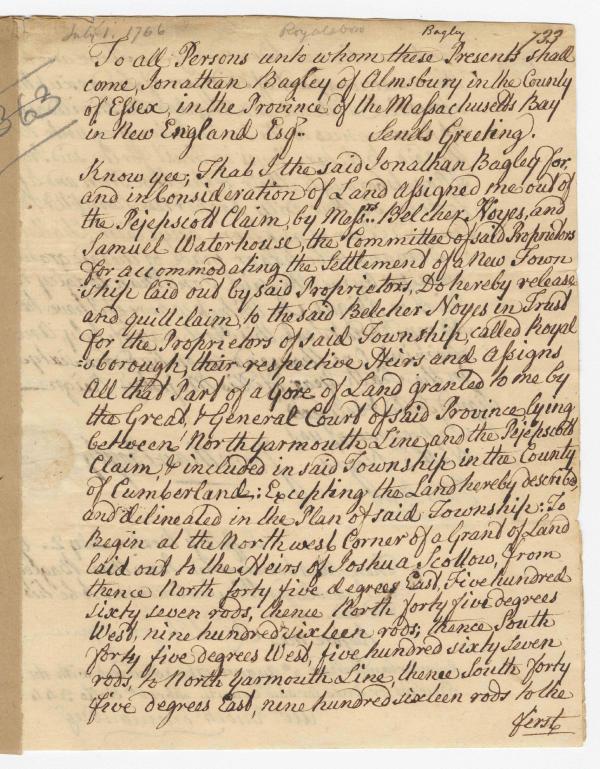 July 1. 1766 Royalsboro Bagley 723
363
To all Persons unto whom these Presents shall
come, Jonathan Bagley of Almsbury in the County
of Essex, in the Province of the Massachusetts Bay
in New England Esqr. Sends Greeting.
Know yee, That I the said Jonathan Bagley for,
and in Consideration of Land Assigned me out of
the Pejepscott Claim, by Messrs. Belcher Noyes, and
Samuel Waterhouse, the Committee of said Proprietors
for accommodating the Settlement of a New Town
:ship laid out by said Proprietors, Do hereby release
and quitclaim, to the said Belcher Noyes in Trust
for the Proprietors of said Township, called Royal
:sborough, their respective Heirs and Assigns
All that Part of a Gore of Land granted to me by
the Great & General Court of said Province lying
between North Yarmouth Line, and the Pejepscott
Claim, & included in said Township in the County
of Cumberland: Excepting the Land hereby described,
and delineated in the Plan of said Township: To
Begin at the North west Corner of a Grant of Land
laid out to the Heirs of Joshua Scottow, from
thence North forty five degrees East, Five hundred
sixty seven rods, thence North forty five degrees
West, nine hundred sixteen rods; thence South
forty five degrees West, five hundred sixty seven
rods, to North Yarmouth Line, thence South forty
five degrees East, nine hundred sixteen rods to the
first